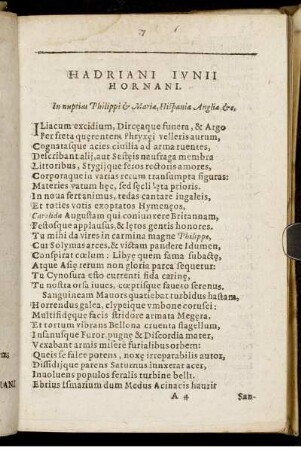 HADRIANI IVNII
HORNANI.
In nuptias Philippi & Mariæ, Hispaniæ Angliæ. &c.
ILiacum excidium, Dircęaque funera, & Argo
Per freta quęrentem Phryxęi velleris aurum,
Cognatasque acies ciuilia ad arma ruentes,
Describant alij, aut naufraga membra
Littoribus, Stygijque feros rectoris amores,
Corporaque in varias rerum transumpta figuras:
Materies vatum hęc, sed sęcli lęta prioris.
In noua fert animus, tedas cantare iugaleis,
Et toties votis exoptatos Hymenęos.
Carolida Augustam qui coniunxere Britannam,
Festosque applausus, & lętos gentis honores.
Tu mihi da vires in carmina magne Philippe,
Cui Solymas arces, & victam pandere Idumen,
Conspirat cœlum: Libye quem fama subactę,
Atque Asię rerum non gloria parca sequetur:
Tu Cynosura esto currenti fida carinę,
Tu nostra orsa iuues, cœptisque faueto serenus.
Sanguineam Mauors quatiebat turbidus hastam,
Horrendus galea, clypeique vmbone corusci:
Multifidęque facis stridore armata Megęra.
Et tortum vibrans Bellona cruenta flagellum,
Insanusque Furor, pugnę & Discordia mater,
Vexabant armis miserè furialibus orbem:
Queis se falce potens, noxę irreparabilis autor,
Dissidijque parens Saturnus iunxerat acer,
Inuoluens populos feralis turbine belli.
Ebrius Ismarium dum Medus Acinacis haurit
A 4 San-